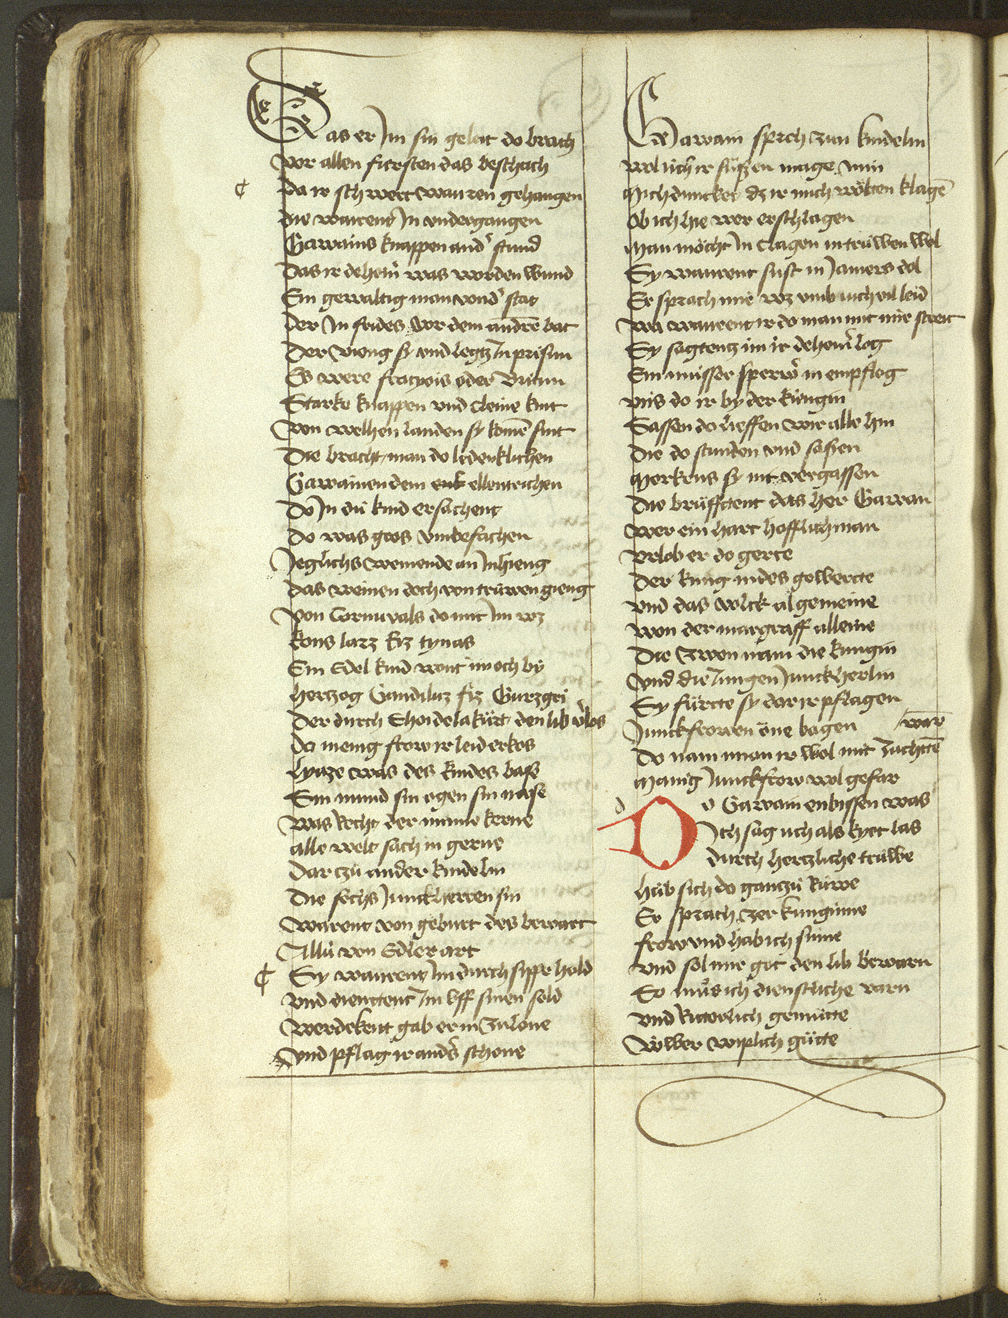 Das er Im sin geleit do brach
Vor allen fiersten das beschach
Da ir schwert wauren gehangen
die waurent In undergangen
Gawains knappen and' stund
Das ir dehein' was worden wund
Ein gewaltig man von d' stat
Der In frides vor dem andrē bat
Der vieng sy vnd legtz In prisun
Es were franzois oder Britun
Starke knappen vnd cleine kint
Von welhen landen sy komē sint
Die bracht man do ledenklichen
Gawainen dem ellentrichen
Do In die kind ersachent
Do was gros vmbefachen
Jeglichs weinende an In hieng
das weinen doch von trüwen gieng
Von Cornuvals do mit Im wz
kons larz fiz tynas
Ein Edel kind wont im och by
hertzog Gandiluz fiz Gurzgri
Der durch Shoidelakurt den lib v'los
da menig frow ir leid erkos
lyaze was des kindes base
Sin mund sin ogen sin nase
Was recht der minne kerne
alle welt sach in gerne
Dar zu ander kindelin
Die sechs Junckherren sin
Waurent von geburt des bewart
Allü von Edler art
Sy waurent Im durch sypp hold
vnd dienttent Im vff sinen sold
Werdekeit gab er in zu lone
Vnd pflag ir anders schone
Gawain sprch zun kindelin
wol üch ir süszen mage min
Mich duncket dz ir mich wölten klagē
Ob ich hie wer erschlagen
Man möcht In clagen in trüwen wol
Sy waurent sust in Jamers dol
Er sprach mir wz vmb üch vil leid
Wa waurent ir do man mit mir streit
Sy sagtentz im ir dehein' log
Ein musser sperw' in empflog
vns do ir by der küngin
Sassen do lieffen wir alle hin
Die do stunden vnd sassen
Merkens sy nit vergassen
Die brüfftent das her Gawan
Wer ein hart hofflich man
Vrlob er do gerte
Der kung in des gewerte
vnd das volck al gemeine
Won der margraff alleine
Die zwen nam die kungin
Vnd die Jungen Junckherlin
Sy fürte sy dar ir pflagen
Junckfrowen öne bagen
war
Do nam man ir wol mit züchtē
Manig Junckfrow wol gefar
Do Gawain enbissen was
Ich sag üch als kyot las
durch hertzliche trüwe
Hüb sich do gantzü rüwe
Er sprach zer kunginne
frow vnd hab ich sinne
Vnd sol mir got den lib bewarn
So mus ich dienstliche varn
Vnd Ritterlich gemütte
Vwer wiplich gütte